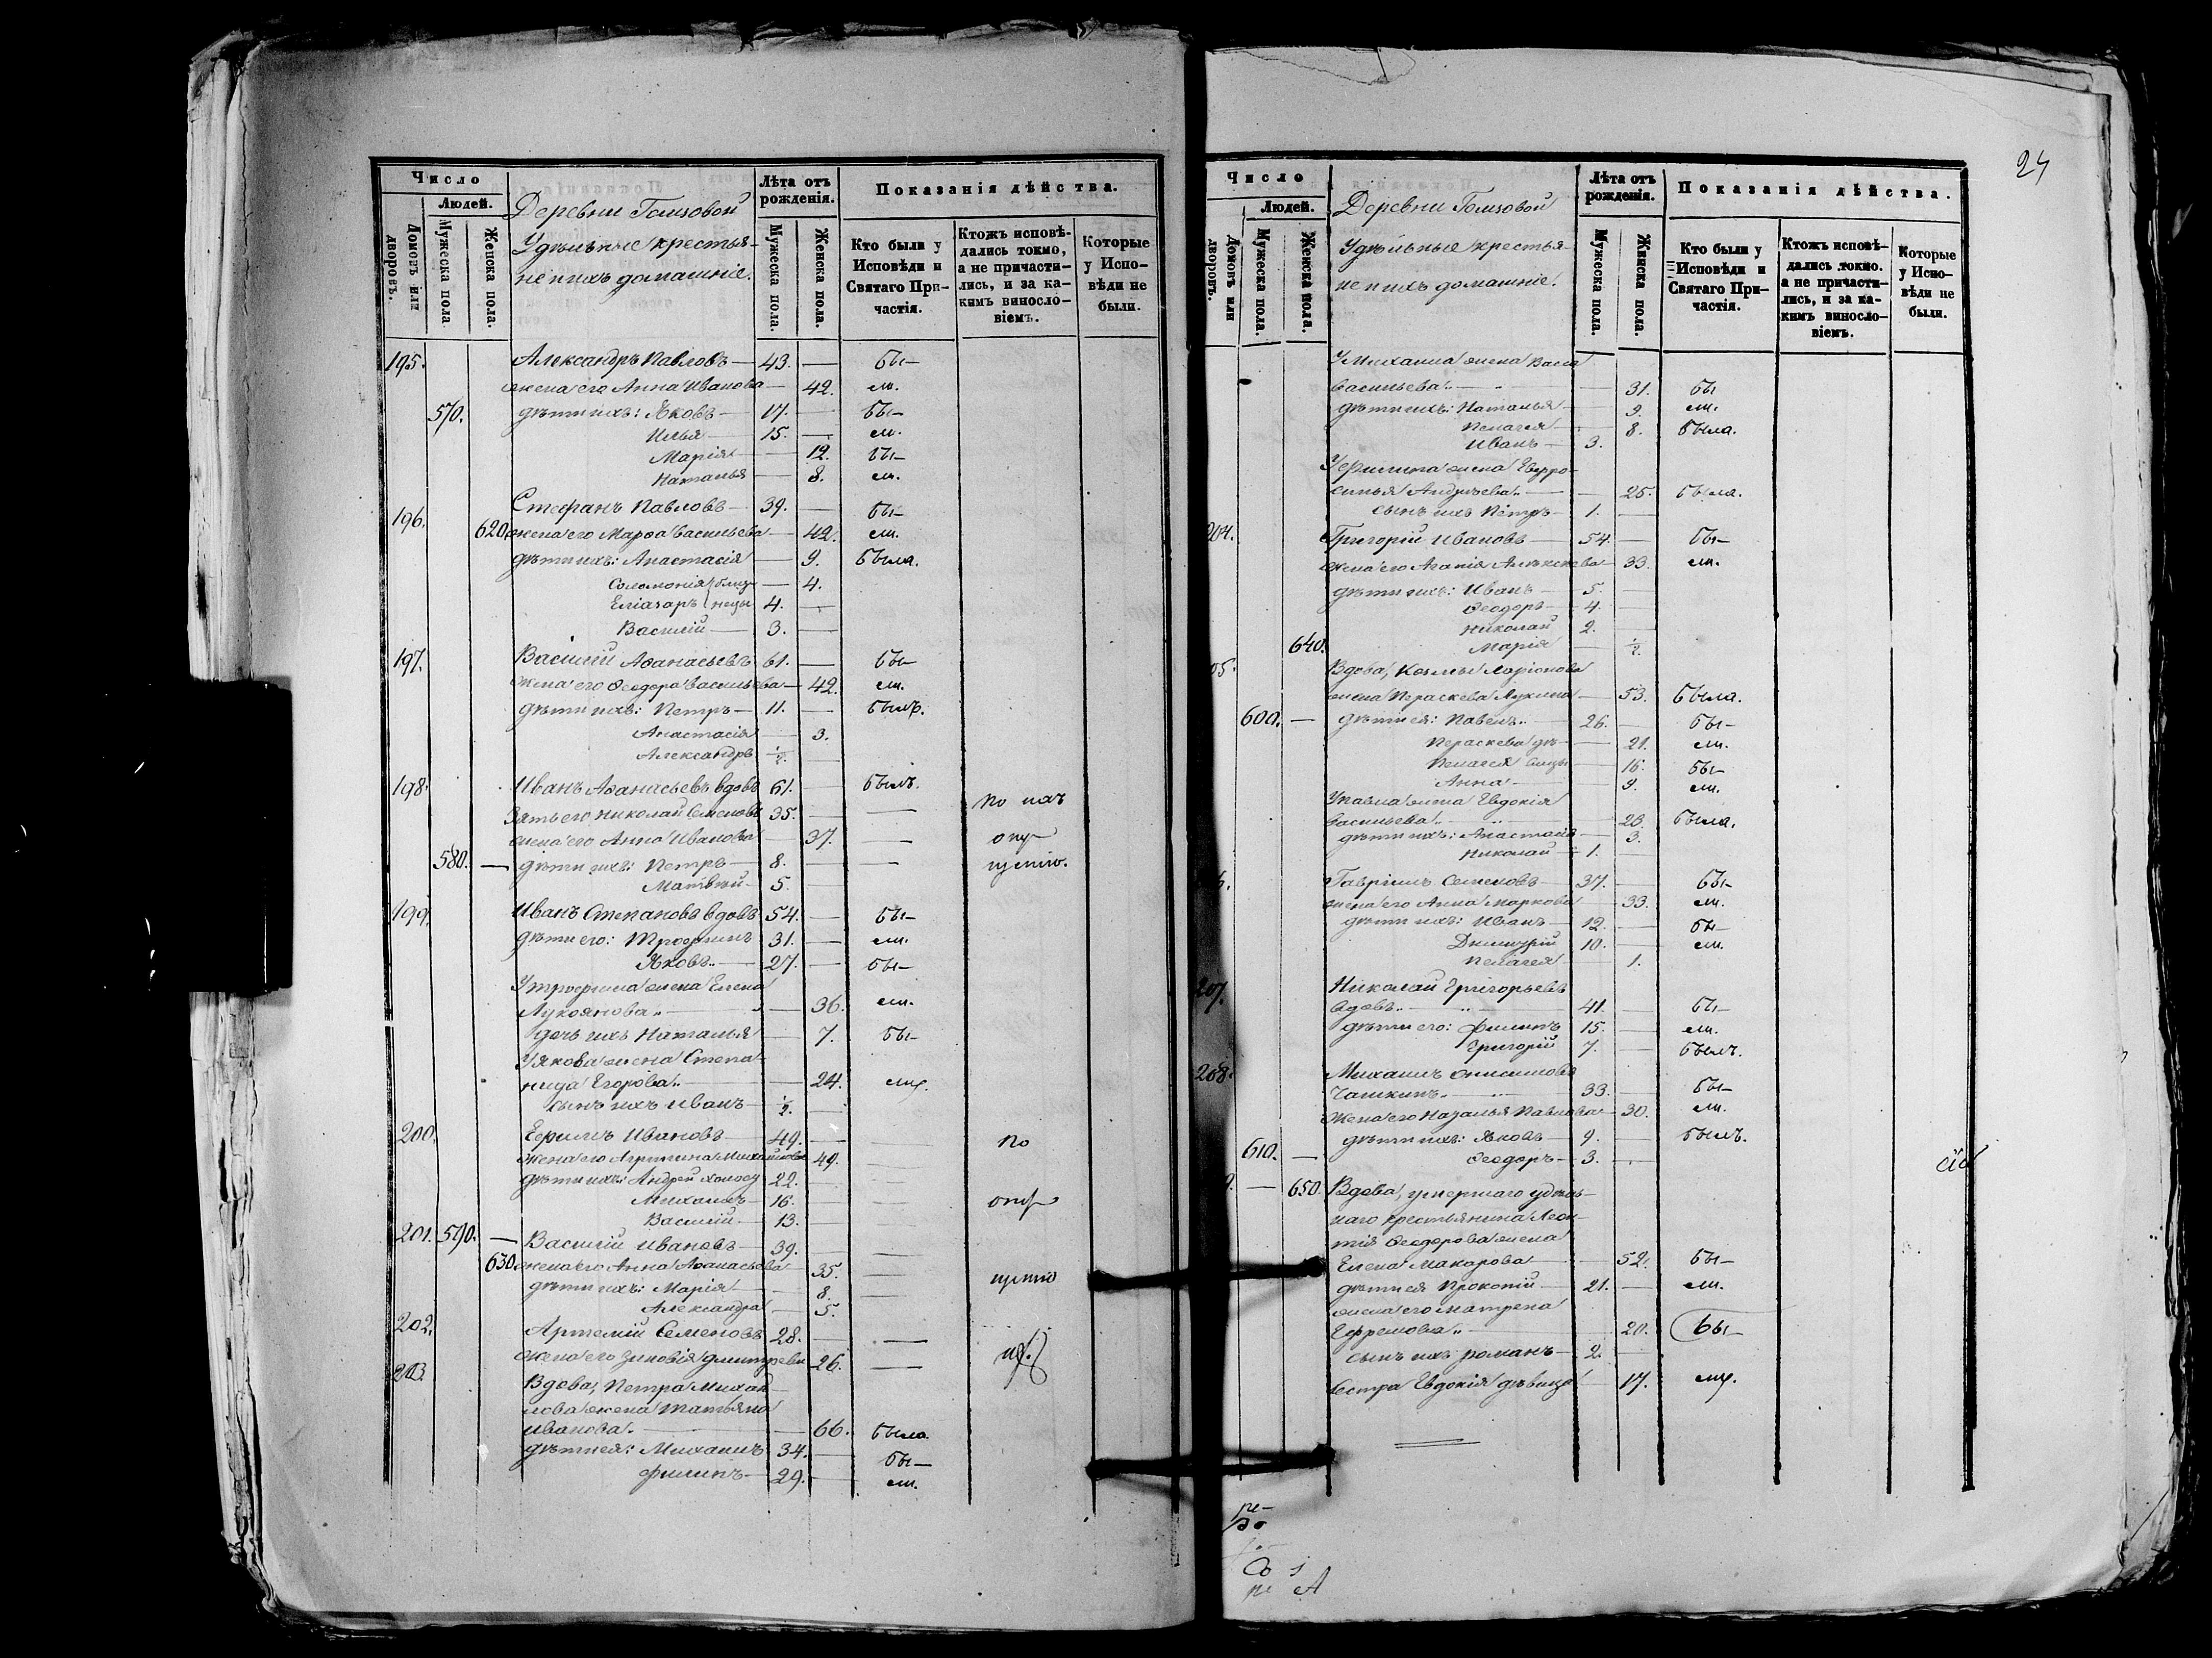 Число
Людей.
Домовъ или дворовъ.
Мужеска пола
Женска пола.
Деревни Голизовой
Удѣльные крестья-
не и ихъ домашніе.
Лѣта отъ рожденія.
Мужеска пола.
Женска пола.
Показанія дѣйства.
Кто были у Исповѣди и Святаго Причастія.
Ктожъ исповѣдались токмо, а не причастились, и за какимъ винословіемъ.
Которые у Исповѣди не были.
195. Александръ Павловъ 43. — бы-
жена его Анна Иванова — 42. ли.
570. дѣти ихъ: Яковъ 17. — бы-
Илья 15. — ли.
Марія — 12. бы-
Наталья — 8. ли.
196. Стефанъ Павловъ 39. — бы-
620. жена его Марѳа Васильева — 42. ли.
дѣти ихъ: Анастасія — 9. была.
Соломонія близ- — 4.
Еліазаръ нецы 4. —
Василій 3. —
197. Василій Аѳанасьевъ 61. — бы-
жена его Ѳеодора Васильева — 42. ли.
дѣти ихъ: Петръ 11. — былъ.
Анастасія — 3.
Александръ ½. —
198. Иванъ Аѳанасьевъ вдовъ 61. — былъ.
Зять его Николай Семеновъ 35. — — по нах
жена его Анна Иванова — 37. — опу
580. — дѣти ихъ: Петръ 8. — — щенію.
Матвѣй 5. —
199. Иванъ Степановъ вдовъ 54. — бы-
дѣти его: Трофимъ 31. — ли.
Яковъ 27. — бы-
У Трофима жена Елена
Лукоянова — 36. ли.
дочь ихъ Наталья — 7. бы-
У Якова жена Степа-
нида Егорова — 24. ли.
сынъ ихъ Иванъ ½. —
200. Ефимъ Ивановъ 49. — — по
жена его Агрипина Михайлова — 49. —
дѣти ихъ: Андрей холост 22. —
Михаилъ 16. — опу
Василій 13. —
201. 590. — Василій Ивановъ 39. — —
630. жена его Анна Аѳанасьева — 35. — щенію
дѣти ихъ: Марія — 8. —
Александра — 5.
202. Артемій Семеновъ 28. — —
жена его Зиновія Дмитрева — 26. —
203. Вдова, Петра Михай-
лова жена Татьяна
Иванова — 66. была.
дѣти ея: Михаилъ 34. — бы-
Филипъ 29. — ли.
24
Число
Людей.
Домовъ или дворовъ.
Мужеска пола.
Женска пола.
Деревни Голизовой
Удѣльные крестья-
не и ихъ домашніе.
Лѣта отъ рожденія.
Мужеска пола.
Женска пола.
Показанія дѣйства.
Кто были у Исповѣди и Святаго Причастія.
Ктожъ исповѣдались токмо. а не причастились, и за какимъ винословіемъ.
Которые у Исповѣди не были.
У Михаила жена Васса
Васильева — 31. бы
дѣти ихъ: Наталья — 9. ли.
Пелагея — 8. была.
Иванъ 3.
У Филипа жена Евфро-
синья Андреева — 25. была.
сынъ ихъ Петръ 1. —
204. Григорій Ивановъ 54. — бы-
жена его Агапія Алексѣева — 33. ли.
дѣти ихъ: Иванъ 5. —
Ѳеодоръ 4. —
Николай 2. —
640. Марія — ½.
05. Вдова, Козмы Ларіонова
жена Параскева Лукина — 53. была.
600. — дѣти ея: Павелъ 26. — бы-
Параскева дѣ- — 21. ли.
Пелагея вицы — 16. бы-
Анна — 9. ли.
У Павла жена Евдокія
Васильева — 23. была.
дѣти ихъ: Анастасія — 3.
Николай 1. —
6. Гавріилъ Семеновъ 37. — бы-
жена его Анна Маркова — 33. ли.
дѣти ихъ: Иванъ 12. — бы-
Димитрій 10. — ли.
Пелагея — 1.
207. Николай Григорьевъ
вдовъ 41. — бы-
дѣти его: Филипъ 15. — ли.
Григорій 7. — былъ.
208. Михаилъ Онисимовъ
Чашкинъ 33. — бы-
жена его Наталья Павлова — 30. ли.
дѣти ихъ: Яковъ 9. — былъ.
610. — Ѳеодоръ 3. —
9. — 650. Вдова, умершаго удѣль-
наго крестьянина Леон-
тія Ѳеодорова жена
Елена Макарова — 52. бы-
дѣти ея Прокопій 21. — ли.
жена его Матрена
Ефремова — 20. бы-
сынъ ихъ Романъ 2. —
сестра Евдокія дѣвица — 17. ли.